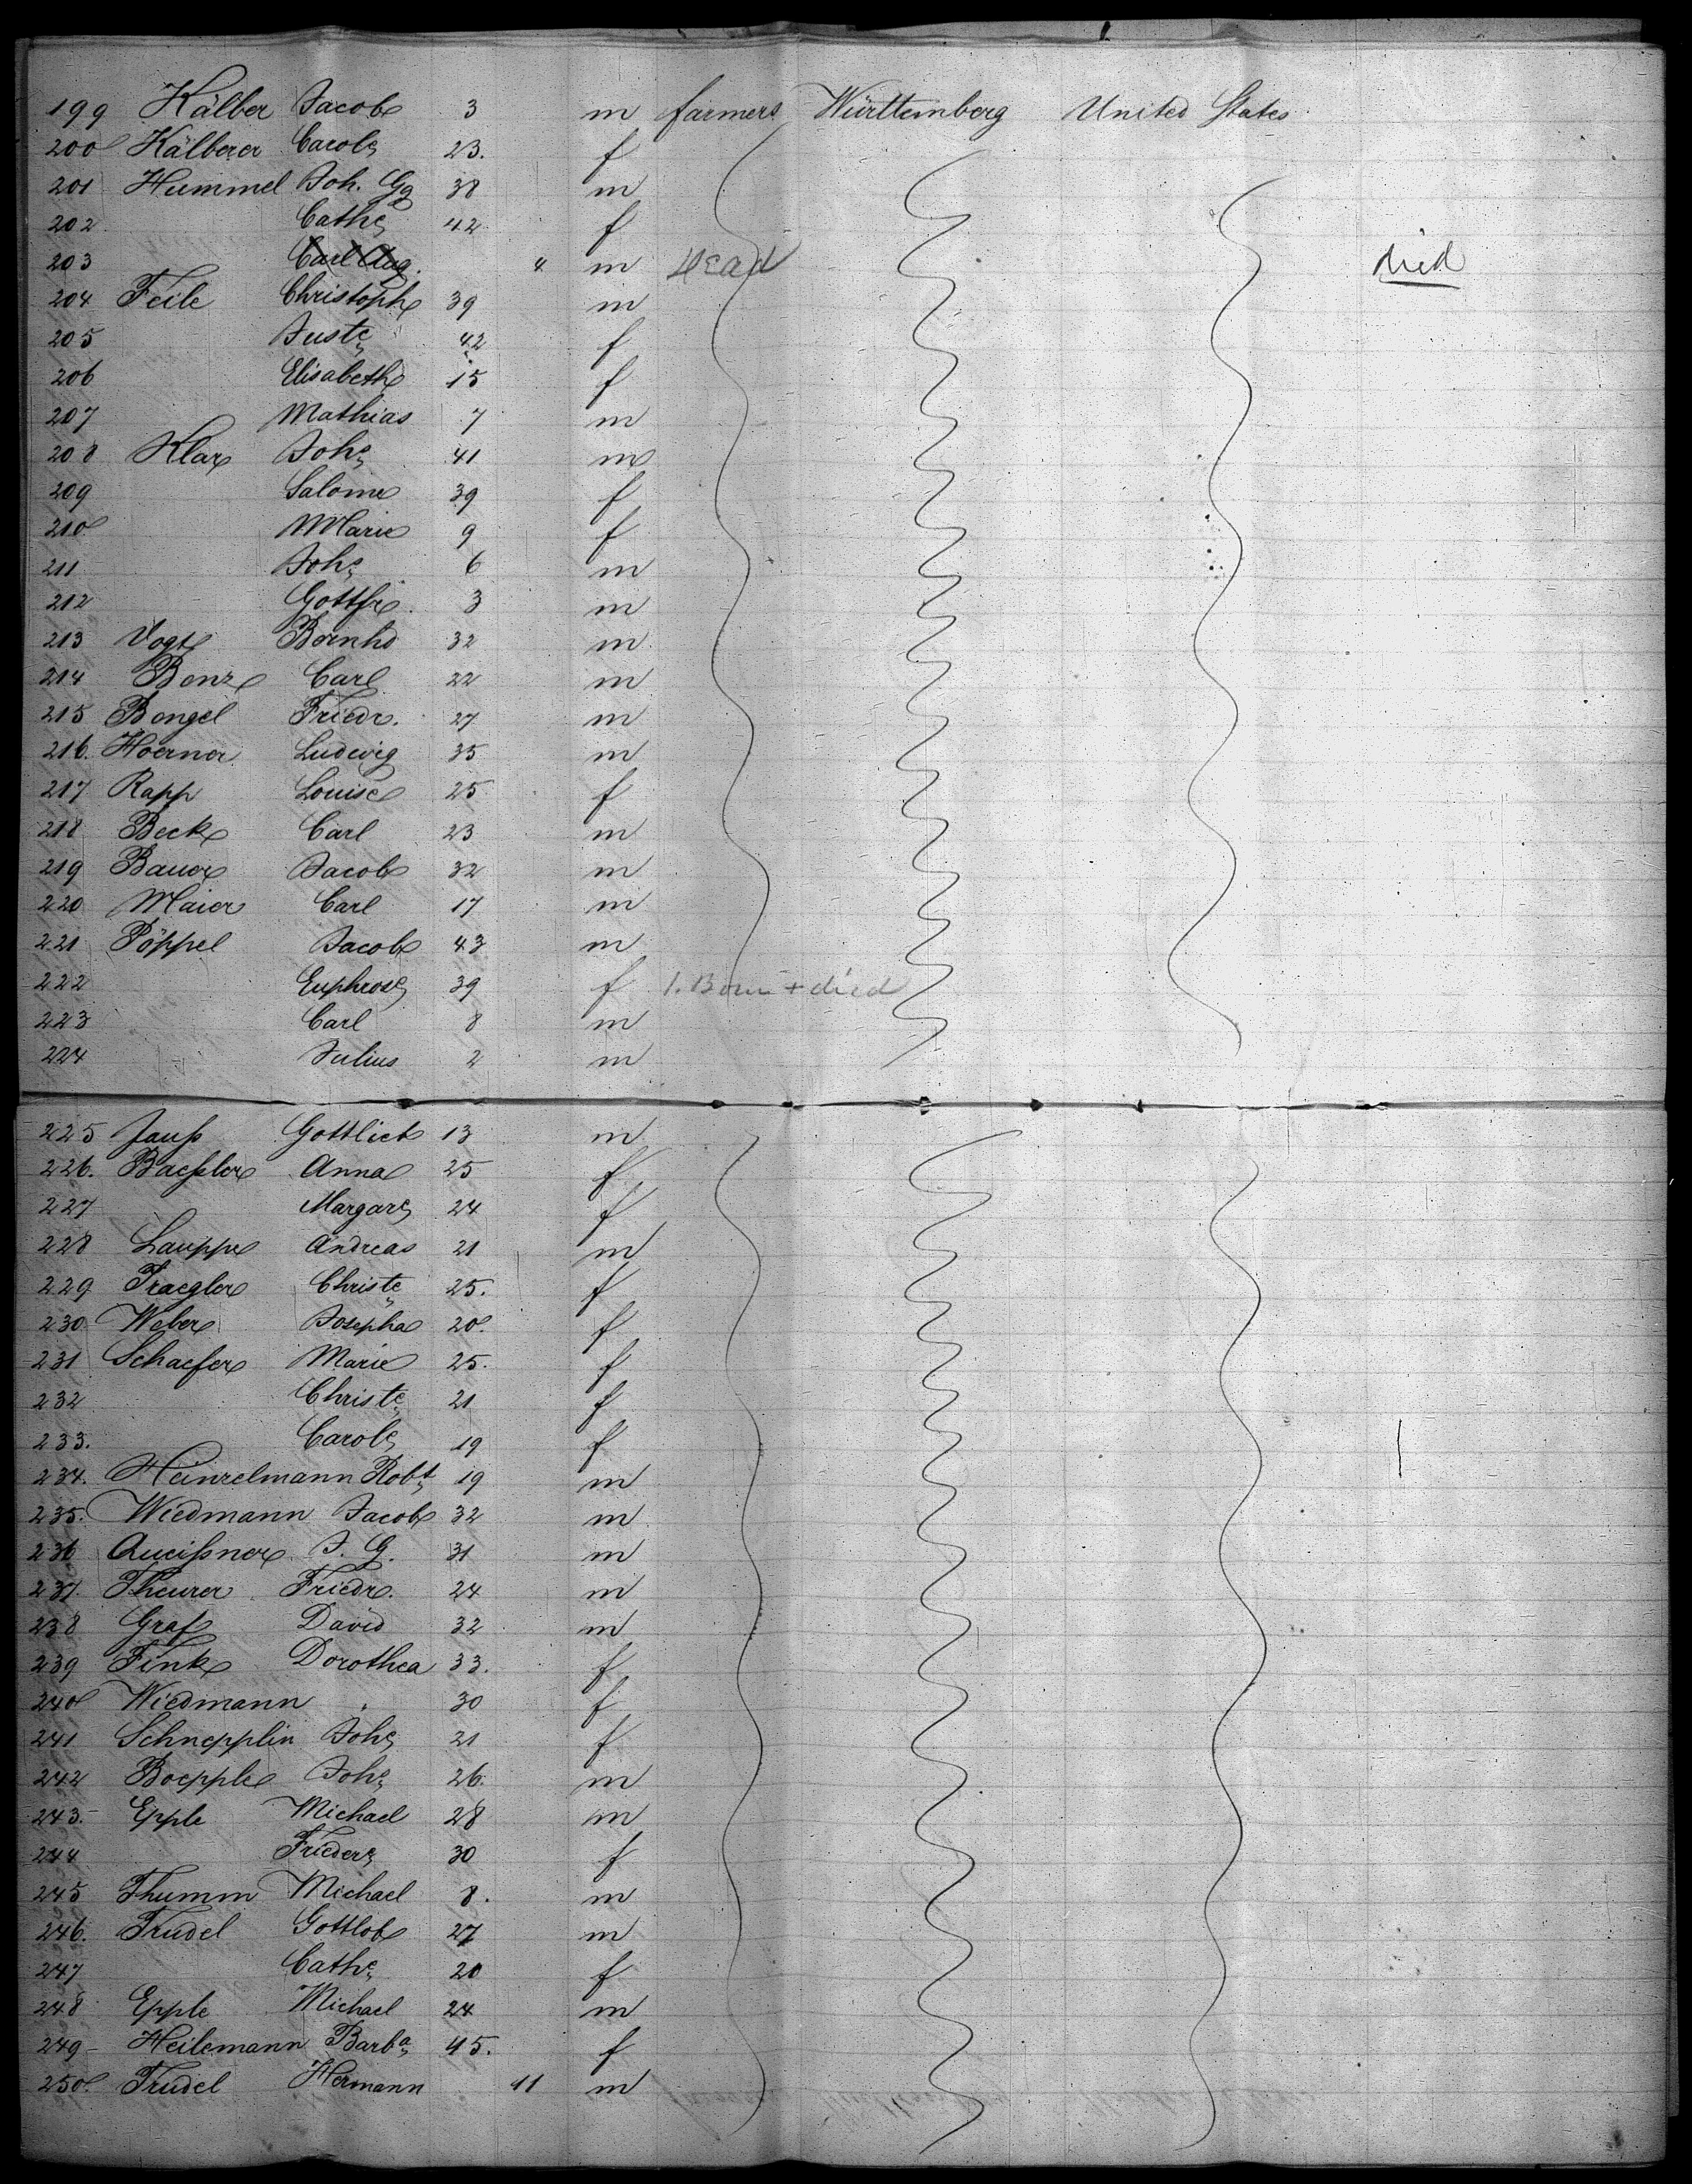 199 Kälber Jacob 3 m farmers Württemberg United States
200 Kälberer Carole 23. f
201 Hummel Joh. Gg 38 m
202 Cathe 42 f
203 Carl Aug. 4 m Dead died
204 Feile Christoph 39 m
205 Juste 42 f
206 Elisabeth 15 f
207 Mathias 7 m
208 Klar Johs 41 m
209 Salome 39 f
210 Marie 9 f
211 Johs 6 m
212 Gottfr. 3 m
213 Vogt Bernhd 32 m
214 Benz Carl 22 m
215 Bengel Friedr. 27 m
216. Hoerner Ludwig 35 m
217 Rapp Louise 25 f
218 Beck Carl 23 m
219 Bauer Jacob 32 m
220 Maier Carl 17 m
221 Pöppel Jacob 43 m
222 Euphrose 39 f 1. Born + died
223 Carl 8 m
224 Julius 2 m
225 Jauß Gottlieb 13 m
226. Baeßler Anna 25 f
227 Margare 24 f
228 Lauppe Andreas 21 m
229 Traegler Christe 25. f
230 Weber Josepha 20. f
231 Schaefer Marie 25. f
232 Christe 21 f
233. Carole 19 f
234. Heinzelmann Robt 19 m
235. Wiedmann Jacob 32 m
236 J. G. 31 m
237. Theurer Friedr. 24 m
238 Graf David 32 m
239 Fink Dorothea 33. f
240 Wiedmann " 30 f
241 Schnepplin Johe 21 f
242 Boepple Johs 26. m
243. Epple Michael 28 m
244 Friedere 30 f
245 Thumm Michael 8. m
246. Trudel Gottlob 27 m
247 Cathe 20 f
248 Epple Michael 24 m
249 - Heilemann Barba 45. f
250. Trudel Hermann 11 m